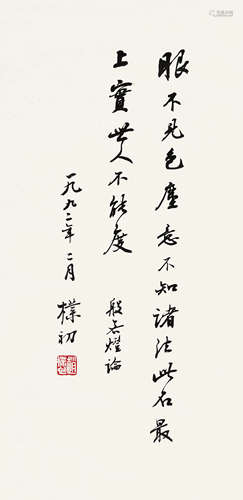 眼不见色尘意不知诸法此名最
上實世人不能度 般若燈論
一九九二年二月 樸初